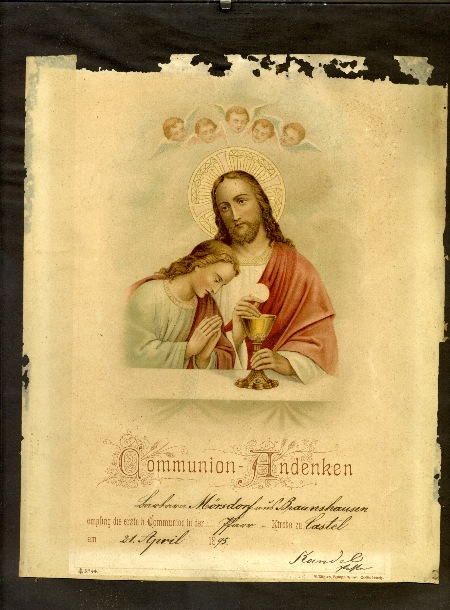 Communion-Andenken
Barbara Mörsdorf aus Braunshausen
empfing die erste h. Communion in der Pfarr - Kirche zu Castel
am 21. April 1895.
Kandels